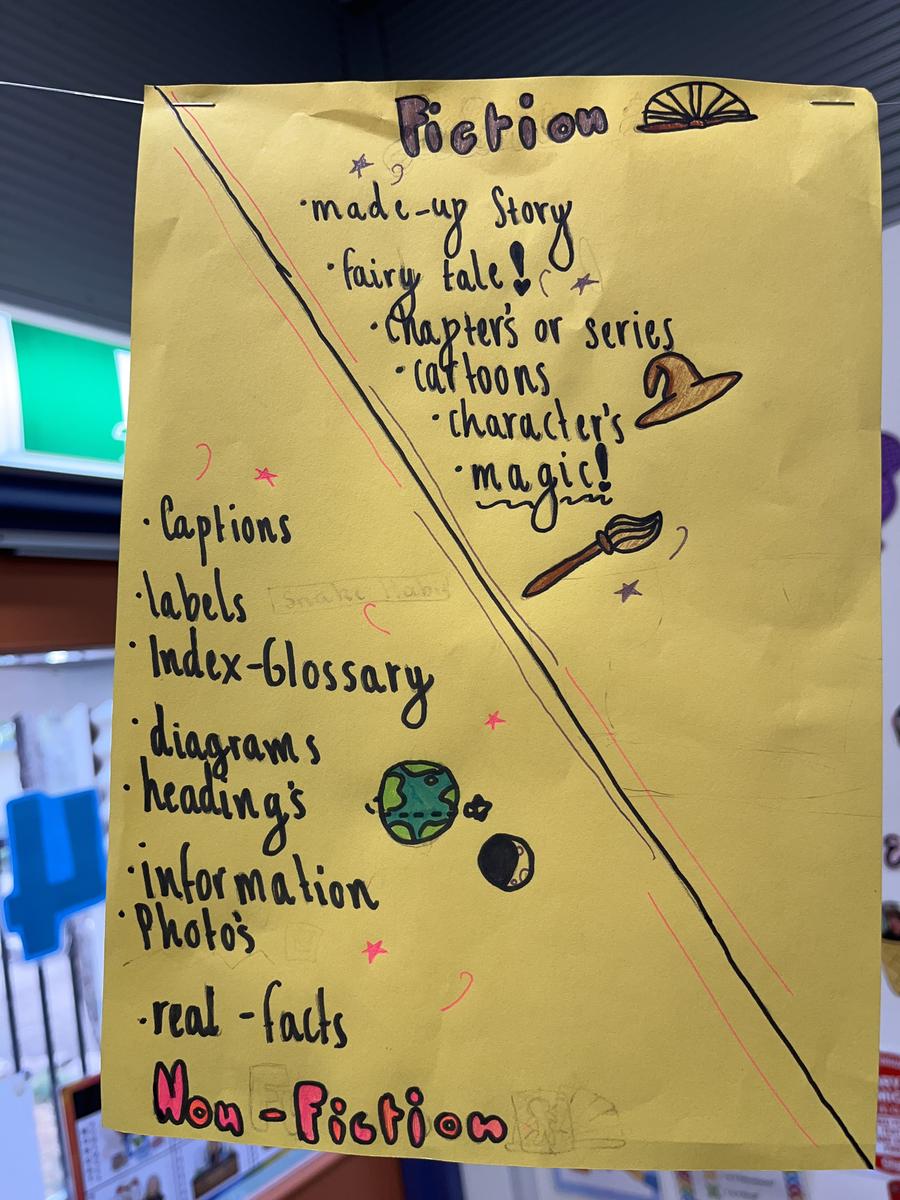 Fiction
·made-up Story
·fairy tale!
·Chapter's or series
·cartoons
·character's
·magic!
·Captions
·labels
·Index-Glossary
·diagrams
·heading's
·information
·Photo's
·real-facts
Non-Fiction